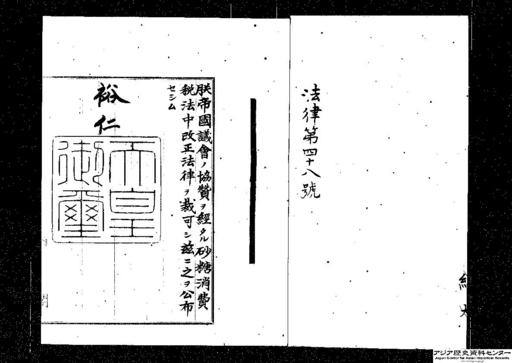 法律第四十八號
朕帝國議會ノ協贊ヲ經タル砂糖消費
稅法中改正法律ヲ裁可シ茲ニ之ヲ公布
セシム
裕仁
天皇
御璽
アジア歴史資料センター
Japan Center for Asian Historical Records